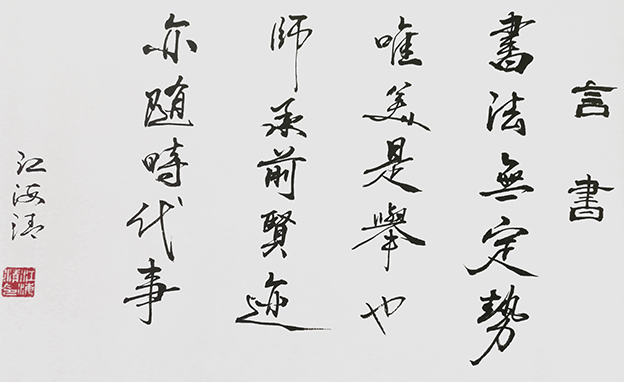 言書
書法無定勢
唯美是舉也
師承前賢迹
亦隨時代事
江海清